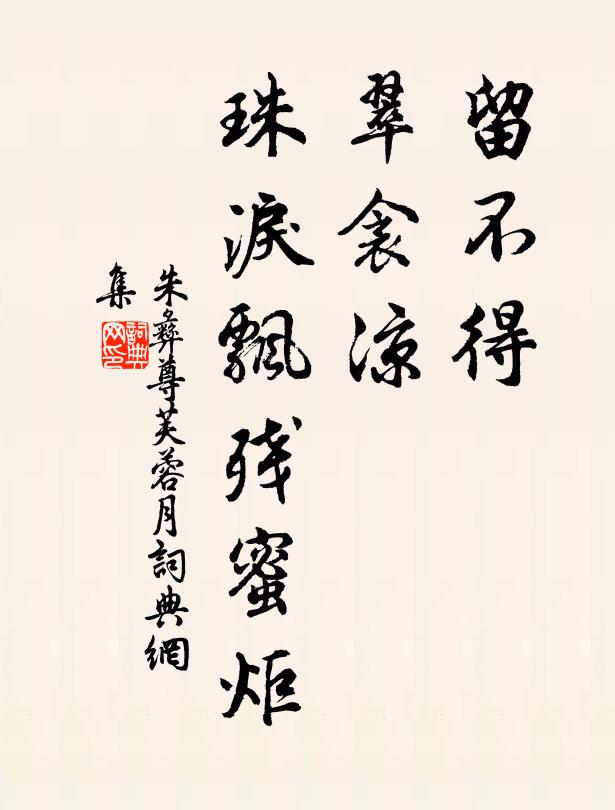 留不得
翠衾涼
珠淚飄殘蜜炬
朱彝尊芙蓉月詞典網
集
詞典
网印